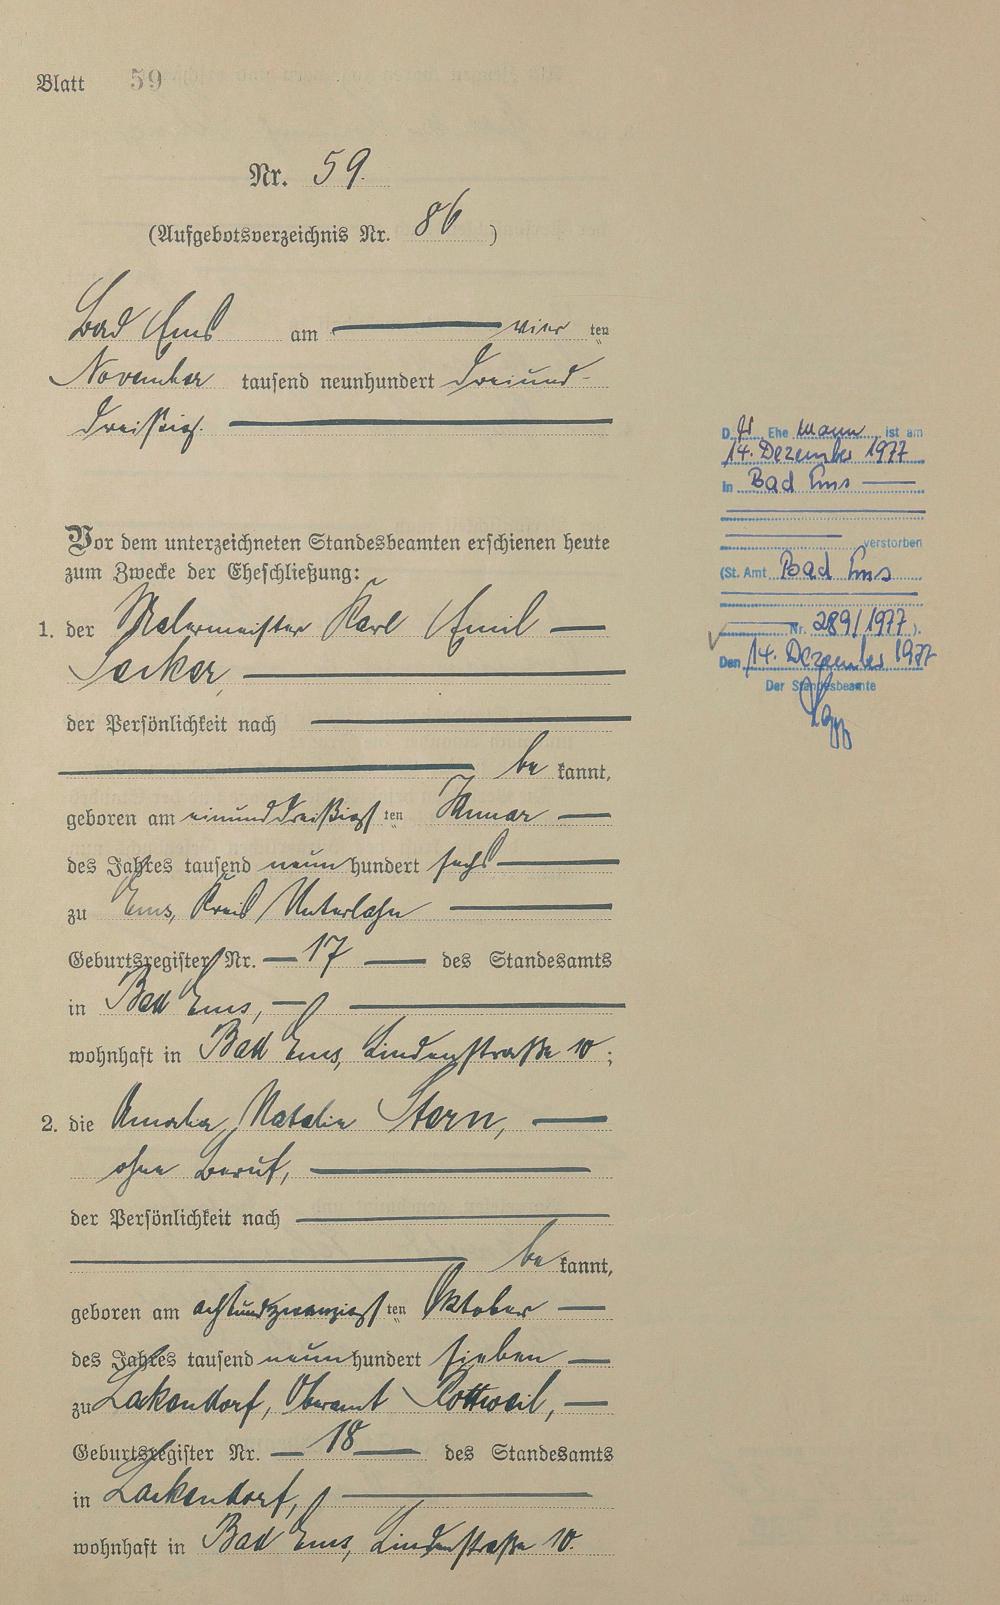 Blatt 59
Nr. 59.
(Aufgebotsverzeichnis Nr. 86)
Bad Ems am vier ten
November tausend neunhundert dreiund-
dreißig.
Vor dem unterzeichneten Standesbeamten erschienen heute
zum Zwecke der Eheschließung:
1. der Malermeister Karl Emil
Sacker,
der Persönlichkeit nach
be kannt,
geboren am einunddreißigs ten Januar
des Jahres tausend neun hundert sechs
zu Ems, Kreis Unterlahn
Geburtsregister Nr. 17 des Standesamts
in Bad Ems,
wohnhaft in Bad Ems, Lindenstraße 10;
2. die Amalia Natalie Stern,
ohne Beruf,
der Persönlichkeit nach
be kannt,
geboren am achtundzwanzigs ten Oktober
des Jahres tausend neun hundert sieben
zu Lackendorf, Oberamt Rottweil,
Geburtsregister Nr. 18 des Standesamts
in Lackendorf,
wohnhaft in Bad Ems, Lindenstraße 10.
D er Ehe mann ist am
14. Dezember 1977
in Bad Ems
verstorben
(St. Amt Bad Ems
Nr. 289/1977).
Den 14. Dezember 1977
Der Standesbeamte